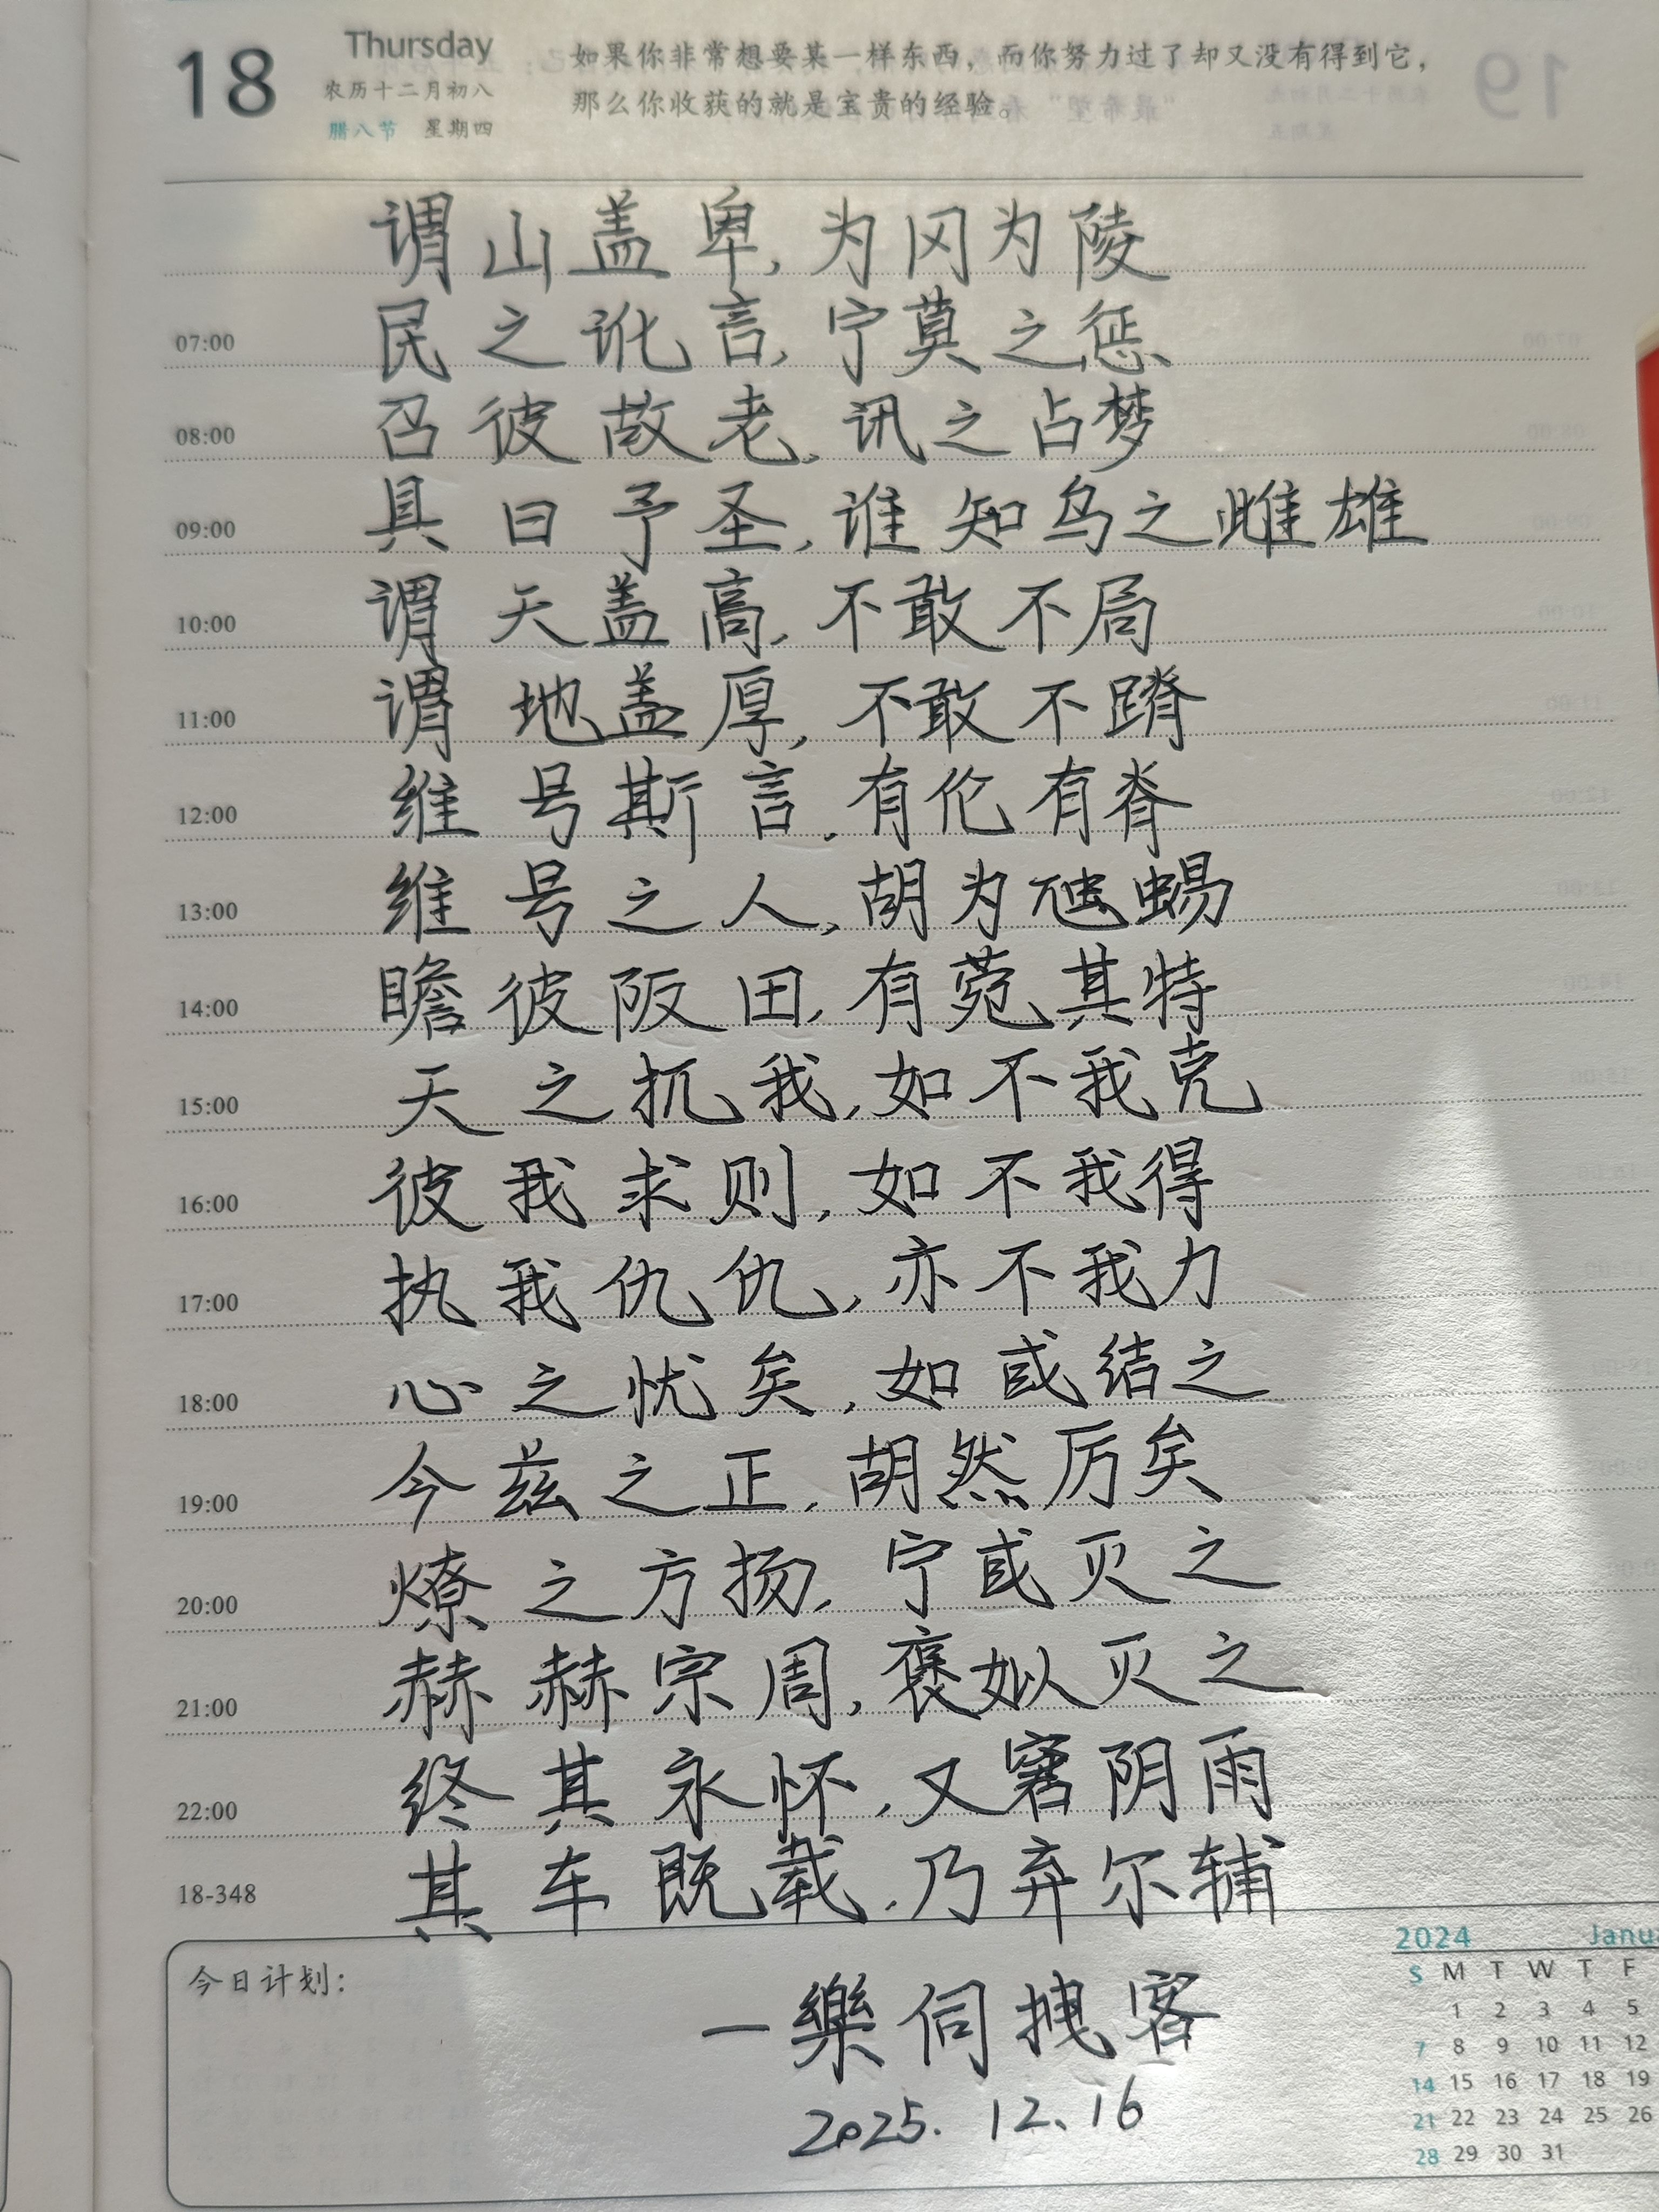 18 Thursday
农历十二月初八
腊八节 星期四
如果你非常想要某一样东西，而你努力过了却又没有得到它，
那么你收获的就是宝贵的经验。
谓山盖卑，为冈为陵
07:00 民之讹言，宁莫之惩
08:00 召彼故老，讯之占梦
09:00 具曰予圣，谁知乌之雌雄
10:00 谓天盖高，不敢不局
11:00 谓地盖厚，不敢不蹐
12:00 维号斯言，有伦有脊
13:00 维号之人，胡为虺蜴
14:00 瞻彼阪田，有菀其特
15:00 天之扤我，如不我克
16:00 彼我求则，如不我得
17:00 执我仇仇，亦不我力
18:00 心之忧矣，如或结之
19:00 今兹之正，胡然厉矣
20:00 燎之方扬，宁或灭之
21:00 赫赫宗周，褒姒灭之
22:00 终其永怀，又窘阴雨
18-348 其车既载，乃弃尔辅
今日计划：
一樂伺拽客
2025.12.16
2024 Janu
S M T W T F
1 2 3 4 5
7 8 9 10 11 12
14 15 16 17 18 19
21 22 23 24 25 26
28 29 30 31